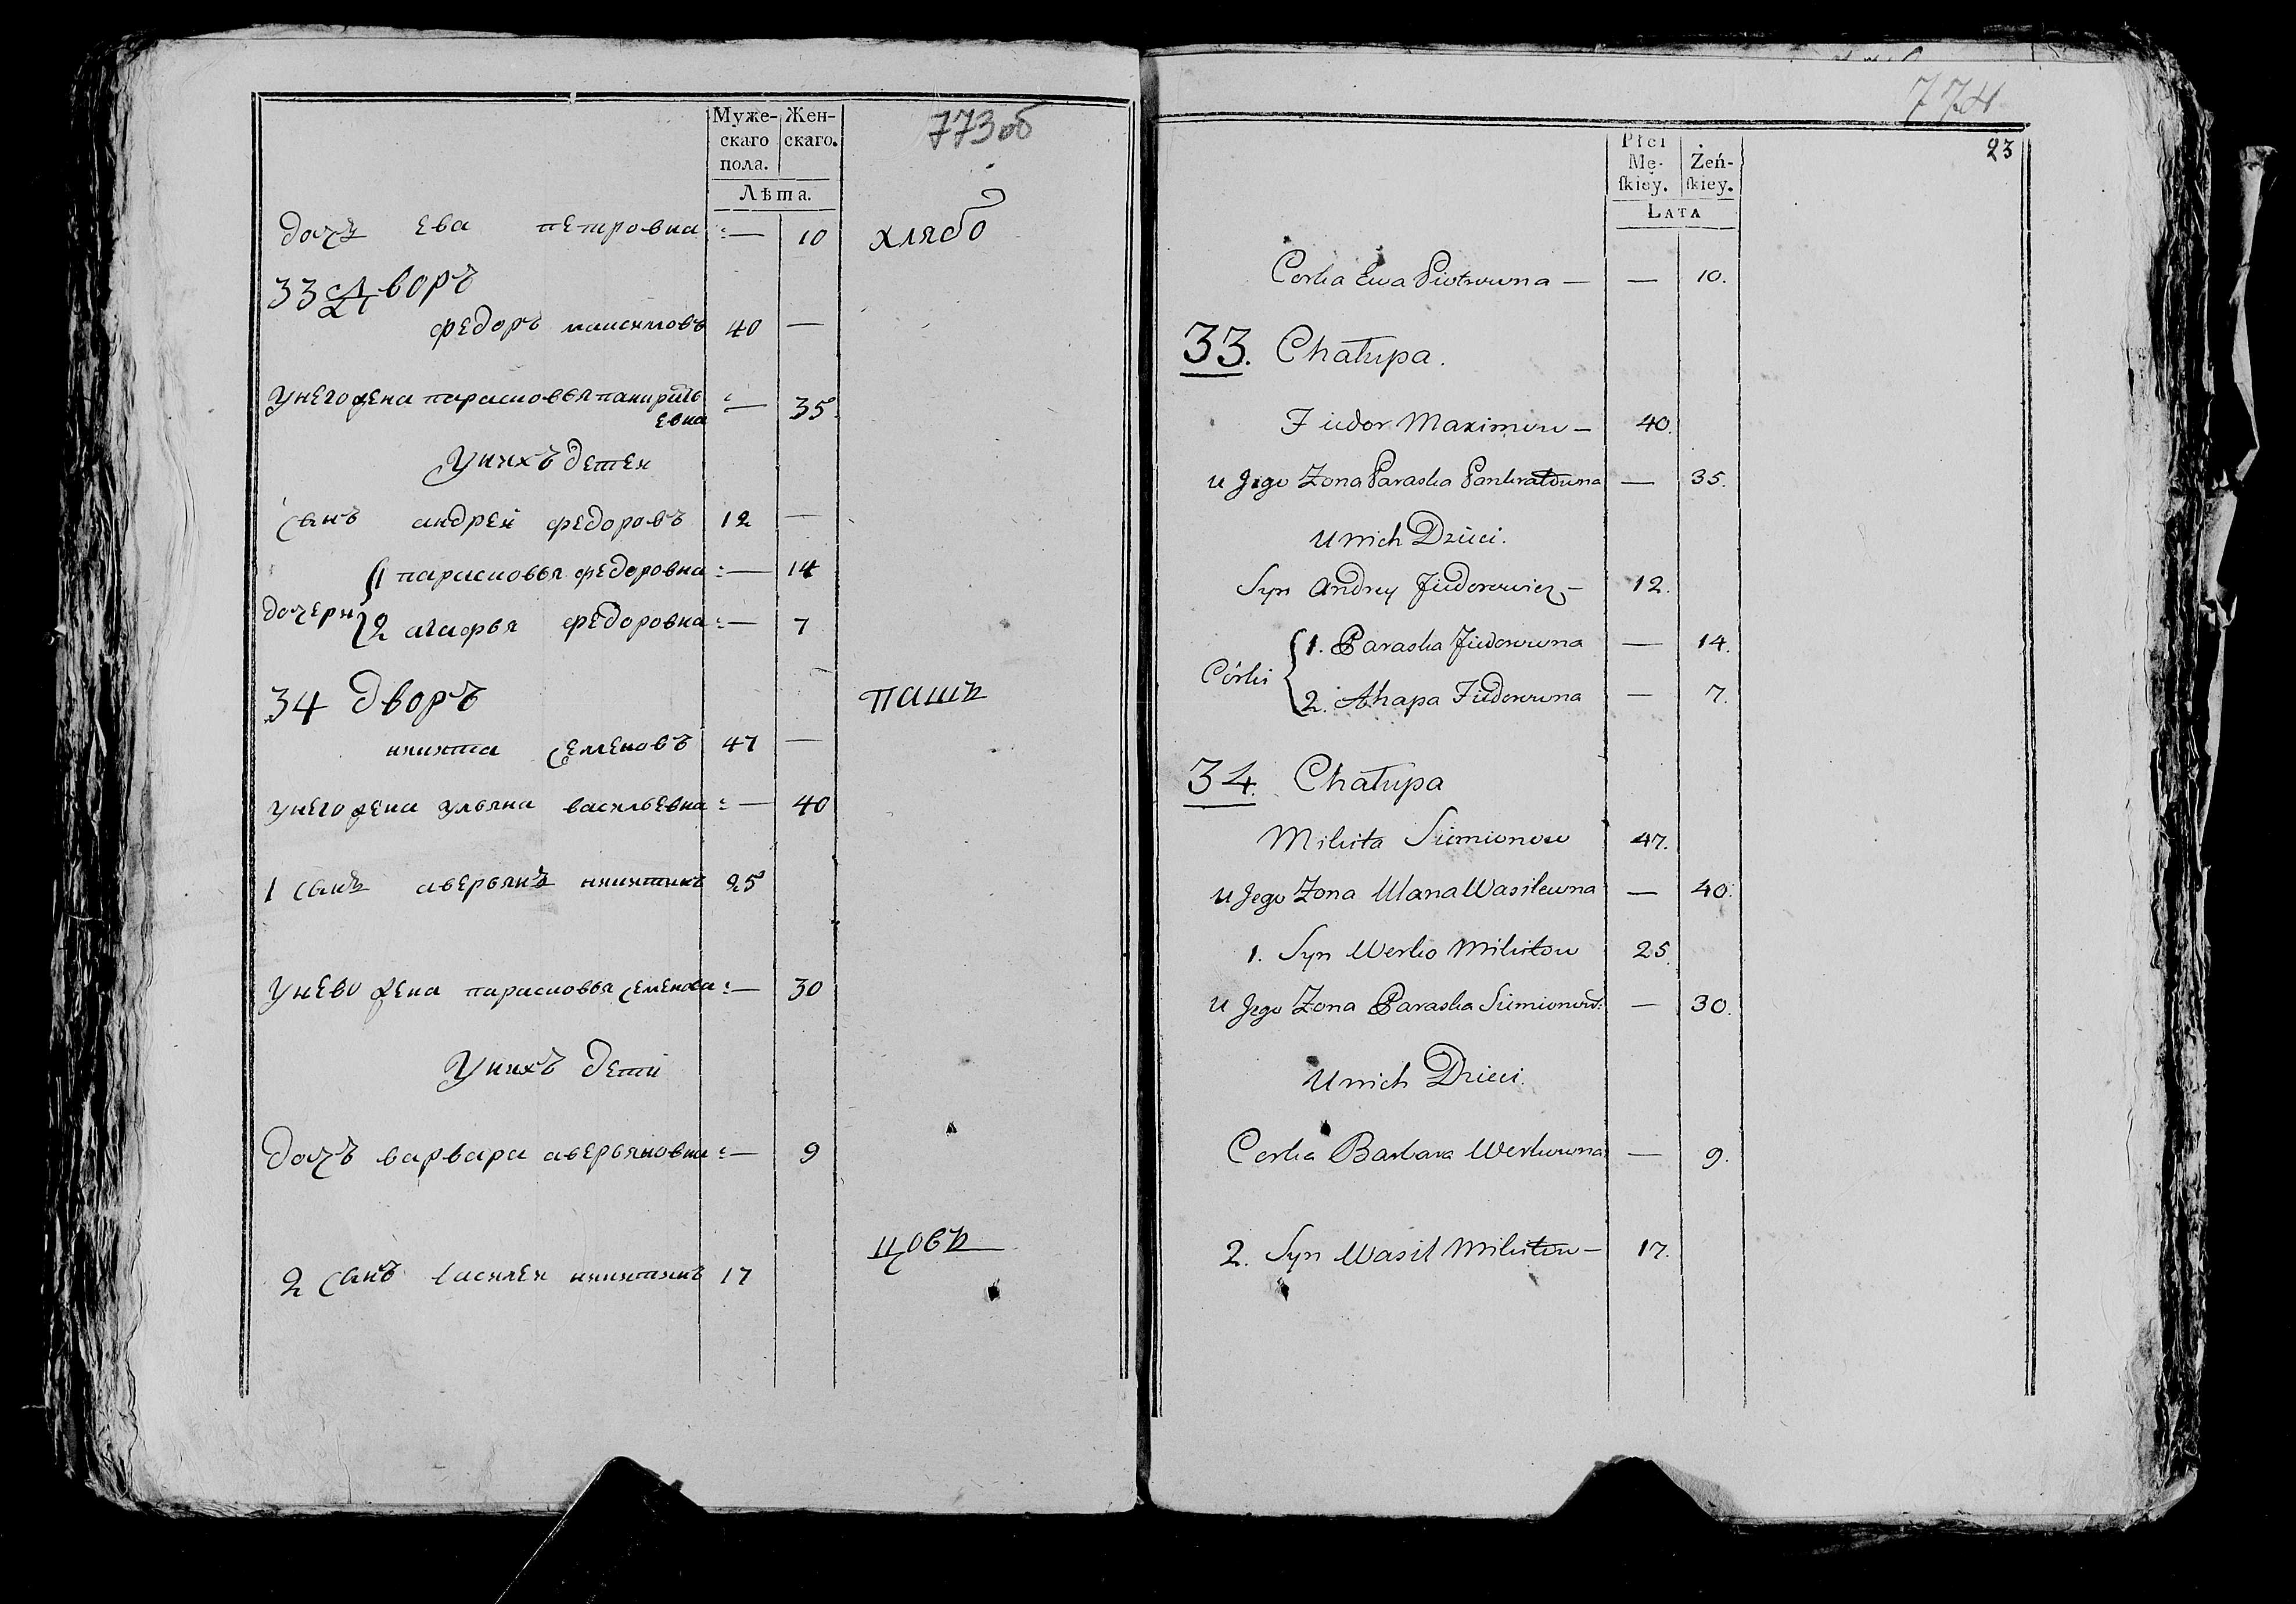 Муже- Жен-
скаго скаго.
пола.
Лѣта.
773об
дочь Ева петровна :— 10 хлябо
33 Дворъ
федоръ максимовъ 40 —
Унего жена парасковья панкрать :— 35
евна
Унихъ детеи
сынъ андреи федоровъ 12 —
1 парасковья федоровна :— 14
дочери
2 агафья федоровна :— 7
34 дворъ пашъ
никита семеновъ 47 —
унего жена ульяна васильевна :— 40
1 сынъ аверьянъ никитинъ 25
Унево жена парасковья семенова :— 30
Унихъ дети
Дочь варвара аверьяновна :— 9
цовъ
2 сынъ василеи никитинъ 17
774
23
Płci
Mę- Żeń-
ſkiey. ſkiey.
LATA
Corka Ewa Piotrowna — — 10.
33. Chałupa.
Fiedor Maximow — 40.
u Jego Zona Paraska Pankratowna — 35.
U nich Dzieci.
Syn Andrey Fiedorowicz — 12.
1. Paraska Fiedorowna — 14.
Córki
2. Ahapa Fiedorowna — 7.
34. Chałupa
Mikita Siemionow 47.
u Jego Zona Ulana Wasilewna — 40.
1. Syn Werko Mikitow 25.
u Jego Zona Paraska Siemionow: — 30.
U nich Dzieci.
Corka Barbara Werkowna — 9.
2. Syn Wasil Mikitow — 17.